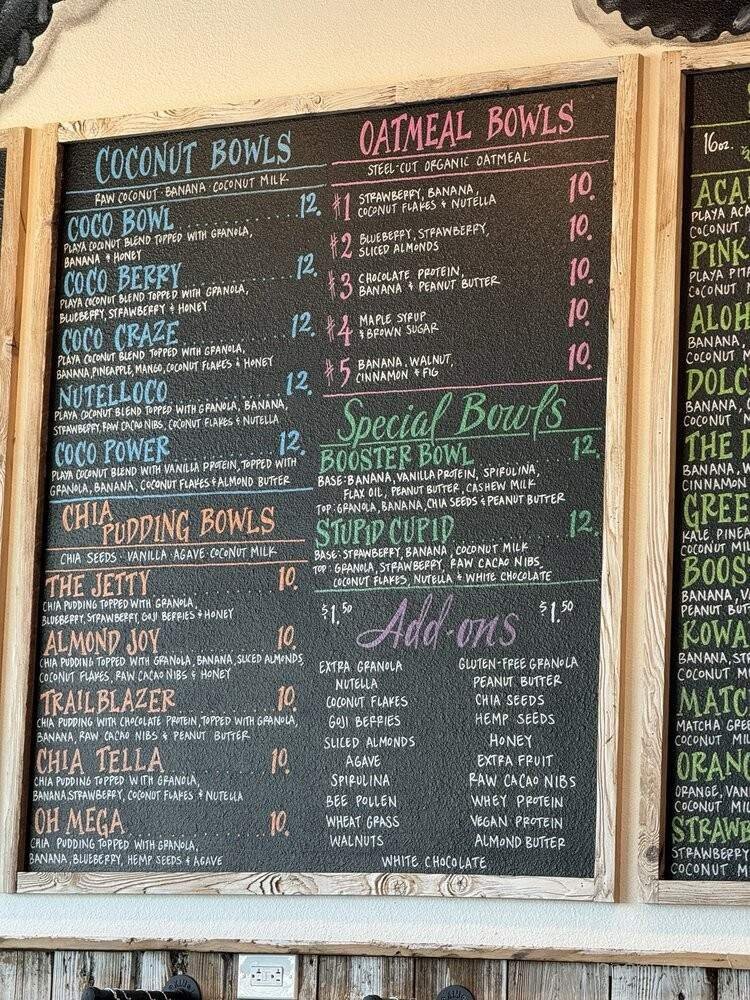 COCONUT BOWLS
RAW COCONUT · BANANA · COCONUT MILK
COCO BOWL 12.
PLAYA COCONUT BLEND TOPPED WITH GRANOLA,
BANANA & HONEY
COCO BERRY 12.
PLAYA COCONUT BLEND TOPPED WITH GRANOLA,
BLUEBERRY, STRAWBERRY & HONEY
COCO CRAZE 12.
PLAYA COCONUT BLEND TOPPED WITH GRANOLA,
BANANA, PINEAPPLE, MANGO, COCONUT FLAKES & HONEY
NUTELLOCO 12.
PLAYA COCONUT BLEND TOPPED WITH GRANOLA, BANANA,
STRAWBERRY, RAW CACAO NIBS, COCONUT FLAKES & NUTELLA
COCO POWER 12.
PLAYA COCONUT BLEND WITH VANILLA PROTEIN, TOPPED WITH
GRANOLA, BANANA, COCONUT FLAKES & ALMOND BUTTER
CHIA
PUDDING BOWLS
CHIA SEEDS · VANILLA · AGAVE · COCONUT MILK
THE JETTY 10.
CHIA PUDDING TOPPED WITH GRANOLA,
BLUEBERRY, STRAWBERRY, GOJI BERRIES & HONEY
ALMOND JOY 10.
CHIA PUDDING TOPPED WITH GRANOLA, BANANA, SLICED ALMONDS,
COCONUT FLAKES, RAW CACAO NIBS & HONEY
TRAILBLAZER 10.
CHIA PUDDING WITH CHOCOLATE PROTEIN, TOPPED WITH GRANOLA,
BANANA, RAW CACAO NIBS & PEANUT BUTTER
CHIA TELLA 10.
CHIA PUDDING TOPPED WITH GRANOLA,
BANANA, STRAWBERRY, COCONUT FLAKES & NUTELLA
OH MEGA 10.
CHIA PUDDING TOPPED WITH GRANOLA,
BANANA, BLUEBERRY, HEMP SEEDS & AGAVE
OATMEAL BOWLS
STEEL-CUT ORGANIC OATMEAL
#1 STRAWBERRY, BANANA, 10.
COCONUT FLAKES & NUTELLA
#2 BLUEBERRY, STRAWBERRY, 10.
SLICED ALMONDS
#3 CHOCOLATE PROTEIN, 10.
BANANA & PEANUT BUTTER
#4 MAPLE SYRUP 10.
& BROWN SUGAR
#5 BANANA, WALNUT, 10.
CINNAMON & FIG
Special Bowls
BOOSTER BOWL 12.
BASE: BANANA, VANILLA PROTEIN, SPIRULINA,
FLAX OIL, PEANUT BUTTER, CASHEW MILK
TOP: GRANOLA, BANANA, CHIA SEEDS & PEANUT BUTTER
STUPID CUPID 12.
BASE: STRAWBERRY, BANANA, COCONUT MILK
TOP: GRANOLA, STRAWBERRY, RAW CACAO NIBS,
COCONUT FLAKES, NUTELLA & WHITE CHOCOLATE
$1.50 Add-ons $1.50
EXTRA GRANOLA
NUTELLA
COCONUT FLAKES
GOJI BERRIES
SLICED ALMONDS
AGAVE
SPIRULINA
BEE POLLEN
WHEAT GRASS
WALNUTS
GLUTEN-FREE GRANOLA
PEANUT BUTTER
CHIA SEEDS
HEMP SEEDS
HONEY
EXTRA FRUIT
RAW CACAO NIBS
WHEY PROTEIN
VEGAN PROTEIN
ALMOND BUTTER
WHITE CHOCOLATE
16oz.
PLAYA
COCONUT
PINK
PLAYA
COCONUT
BANANA,
COCONUT M
BANANA,
COCONUT
THE
BANANA,
CINNAMON
KALE
COCONUT MIL
BANANA,
BANANA,
COCONUT
MATCHA
COCONUT
ORANGE,
COCONUT
STRAWBERRY
COCONUT